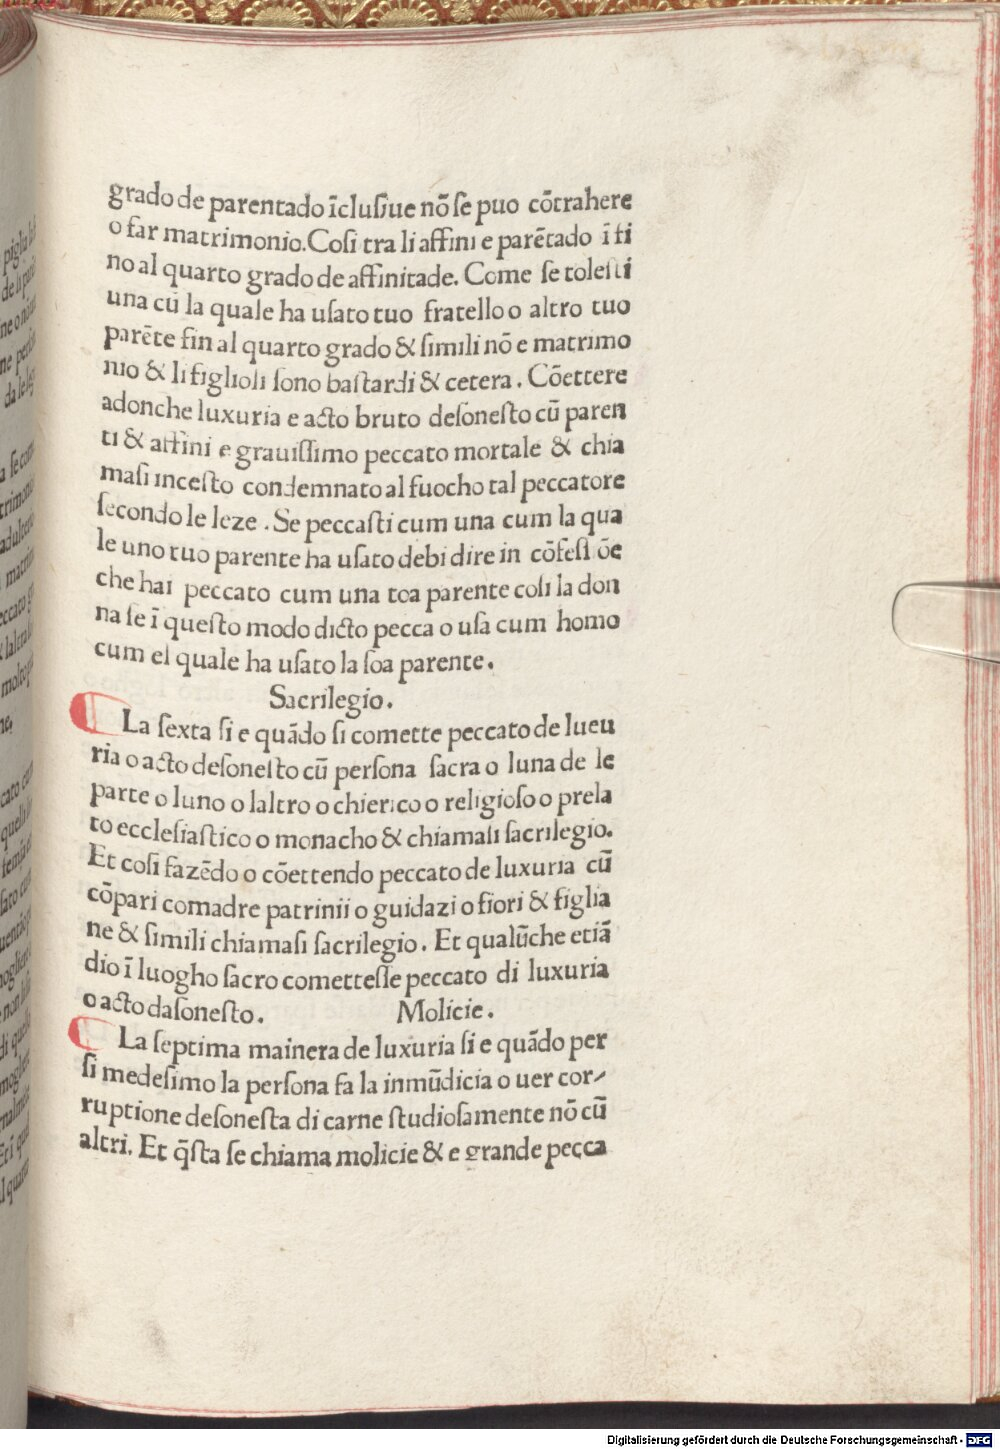 grado de parentado ĩclusiue nō se puo cōtrahere
o far matrimonio. Cosi tra li affini e parētado ĩ fi
no al quarto grado de affinitade. Come se tolesti
una cũ la quale ha usato tuo fratello o altro tuo
parēte fin al quarto grado & simili nō e matrimo
nio & li figlioli sono bastardi & cetera. Cōettere
adonche luxuria e acto bruto desonesto cũ paren
ti & affini e grauissimo peccato mortale & chia
masi incesto condemnato al fuocho tal peccatore
secondo le leze. Se peccasti cum una cum la qua
le uno tuo parente ha usato debi dire in cōfessiōe
che hai peccato cum una toa parente cosi la don
na se ĩ questo modo dicto pecca o usa cum homo
cum el quale ha usato la soa parente.
Sacrilegio.
La sexta si e quādo si comette peccato de lueu
ria o acto desonesto cũ persona sacra o luna de le
parte o luno o laltro o chierico o religioso o prela
to ecclesiastico o monacho & chiamasi sacrilegio.
Et cosi fazēdo o cōettendo peccato de luxuria cũ
cōpari comadre patrinii o guidazi o fiori & figlia
ne & simili chiamasi sacrilegio. Et qualũche etiā
dio ĩ luogho sacro comettesse peccato di luxuria
o acto dasonesto. Molicie.
La septima mainera de luxuria si e quādo per
si medesimo la persona fa la inmũdicia o uer cor⸗
ruptione desonesta di carne studiosamente nō cũ
altri. Et q̃sta se chiama molicie & e grande pecca
Digitalisierung gefördert durch die Deutsche Forschungsgemeinschaft - DFG